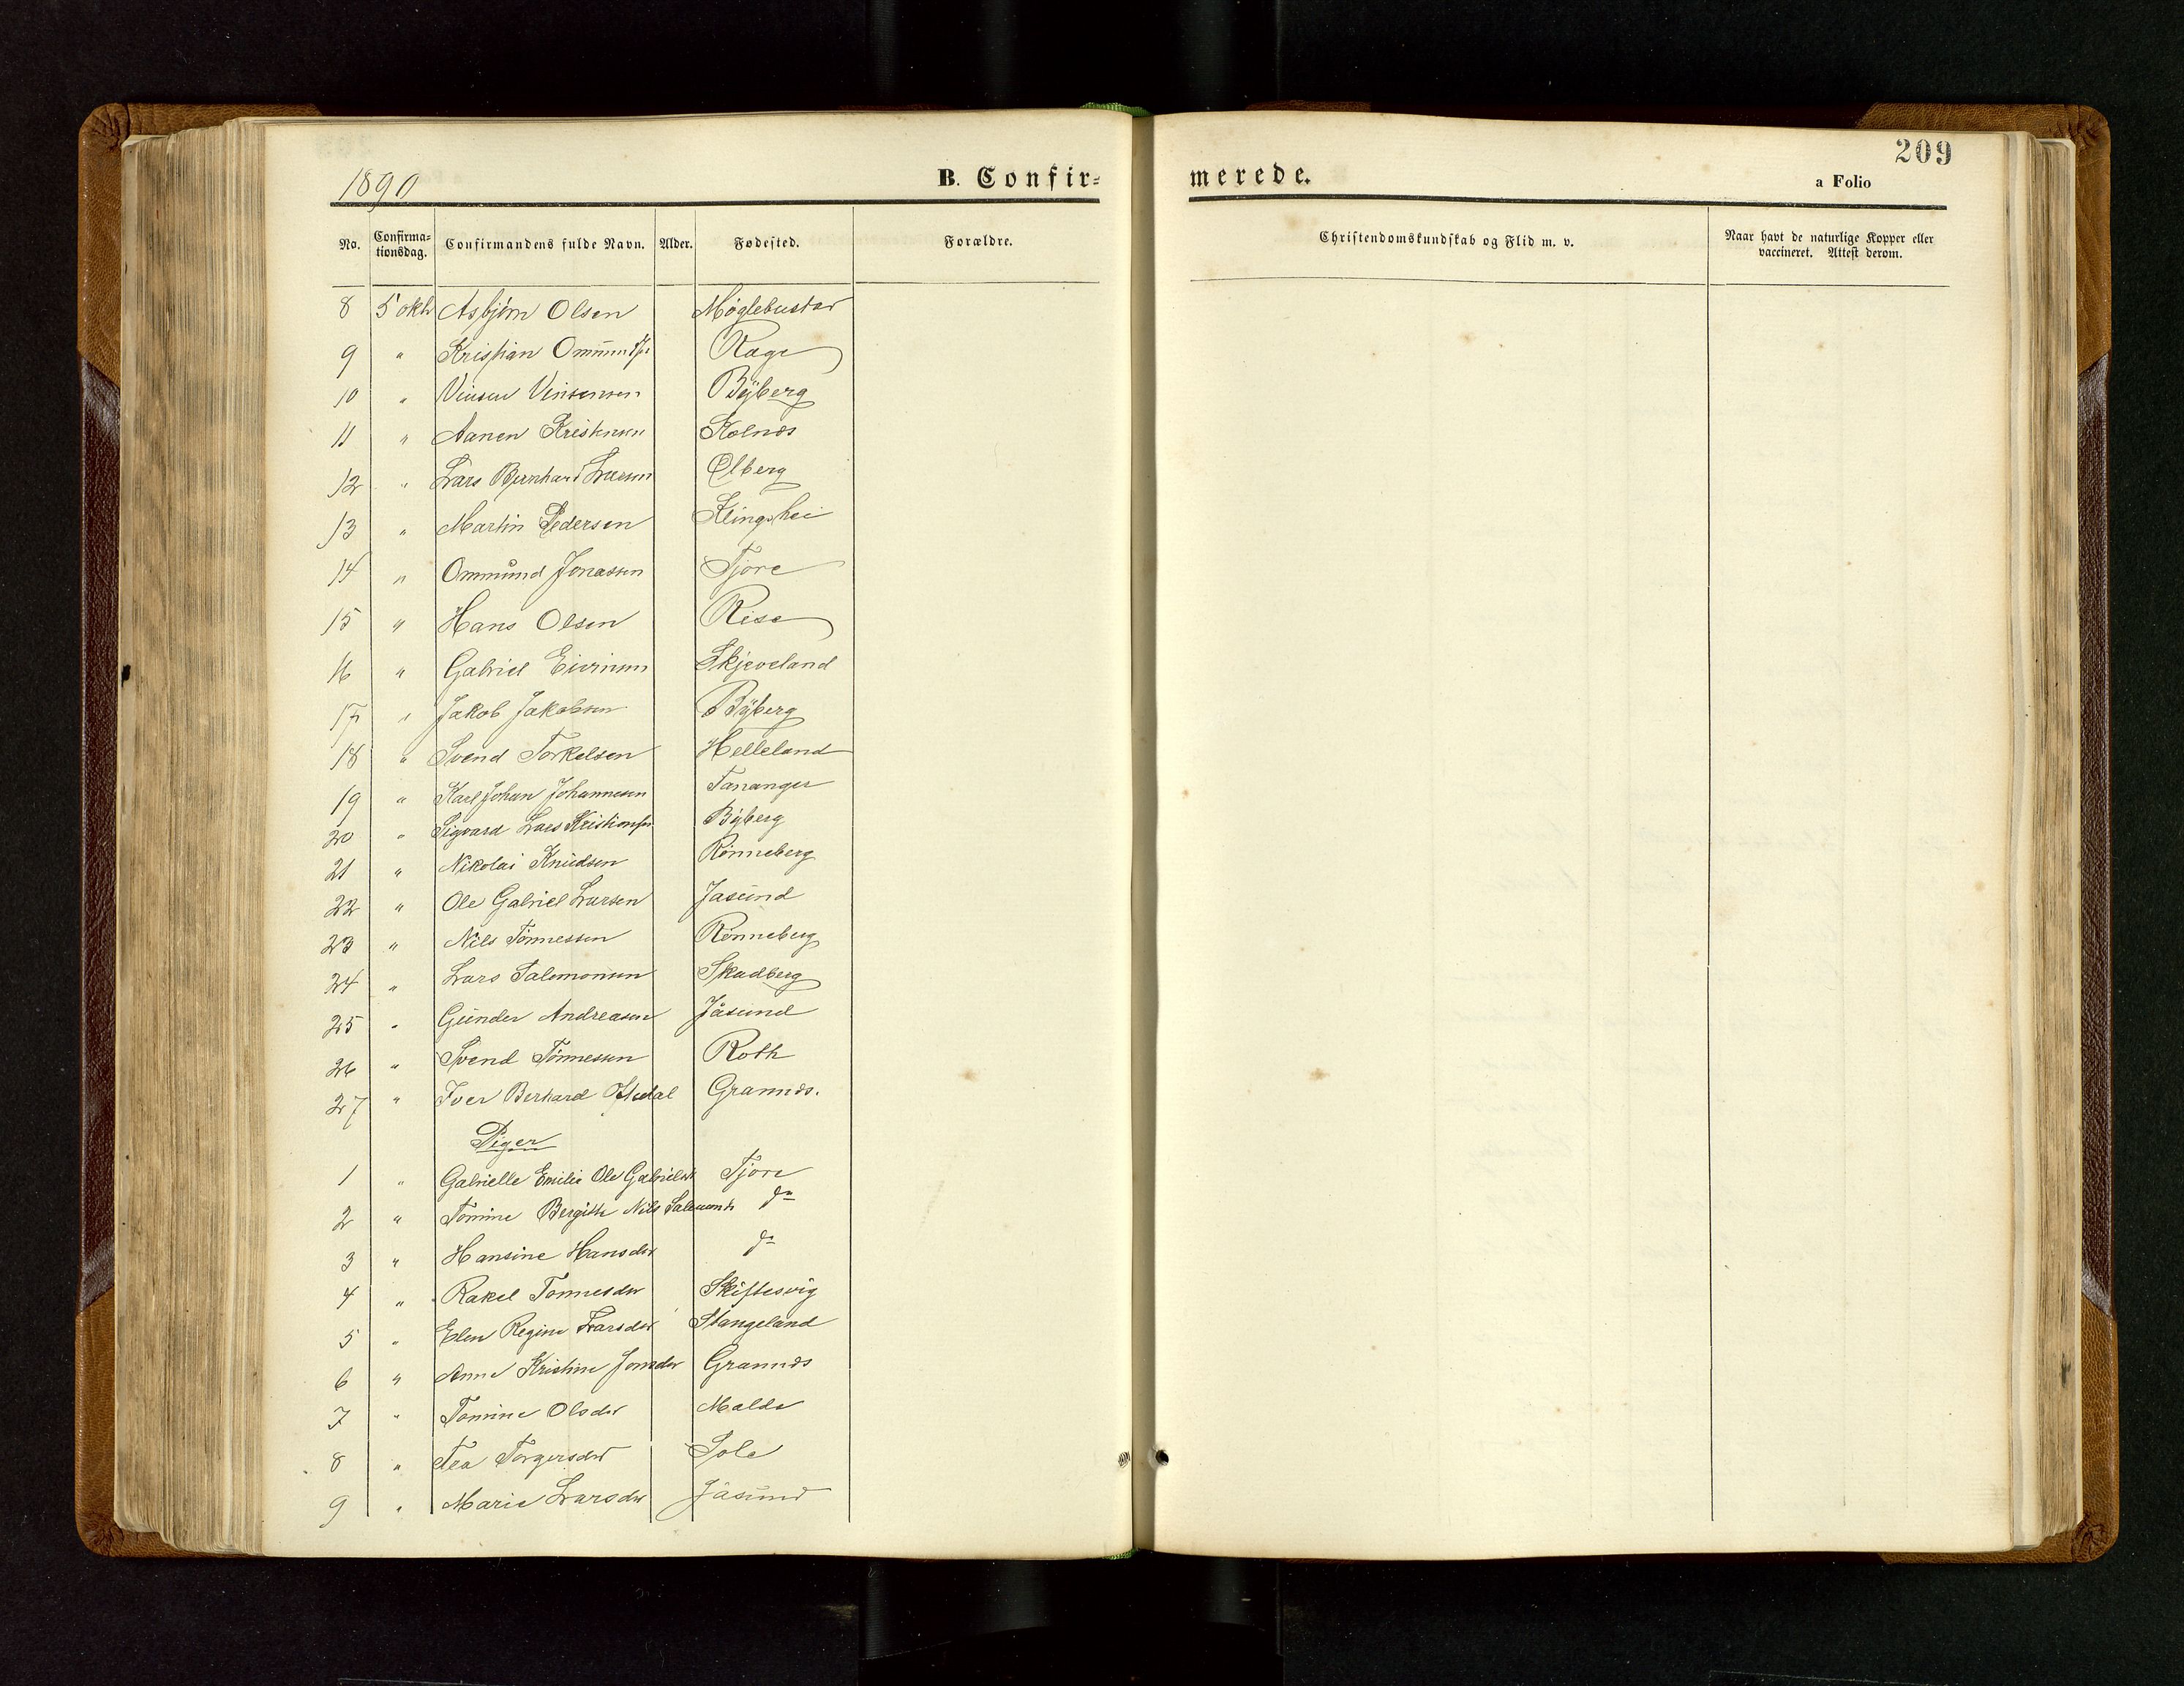 209
1890 B. Confir= merede. a Folio
No. Confirma=tionsdag. Confirmandens fulde Navn. Alder. Fødested. Forældre. Christendomskundskab og Flid m. v. Naar havt de naturlige Kopper eller vaccineret. Attest derom.
8 5 oktr Asbjörn Olsen Möglebustar
9 " Kristian Ommunds Rage
10 " Vinsen Vinsensen Byberg
11 " Aanen Kristensen Kolnæs
12 " Lars Bernhard Larsen Ølberg
13 " Martin Pedersen Klingshei
14 " Ommund Jonassen Tjore
15 " Hans Olsen Risa
16 " Gabriel Skjæveland
17 " Jakob Jakobsen Byberg
18 " Svend Torkelsen Helleland
19 " Karl Johan Johannesen Tananger
20 " Sigvard Lars Kristiansen Byberg
21 " Nikolai Knudsen Rönneberg
22 " Ole Gabriel Larsen Jasund
23 " Nils Tönnessen Rönneberg
24 " Lars Salomonsen Skadberg
25 " Gunder Andreasen Jåsund
26 " Svend Tönnessen Roth
27 " Iver Berhard Grannæs.
Piger
1 " Gabrielle Emilie Ole Gabrielsdr Tjore
2 " Tomine Bergitte Nils Salomons do
3 " Hansine Hansdtr do
4 " Rakel Tonnesdtr Skiftesvig
5 " Elen Regine Larsdtr Stangeland
6 " Anne Kristine Jonsdtr Grannæs
7 " Tomine Olsdtr Malde
8 " Tea Torgersdtr Sole
9 " Marie Larsdtr Jåsund